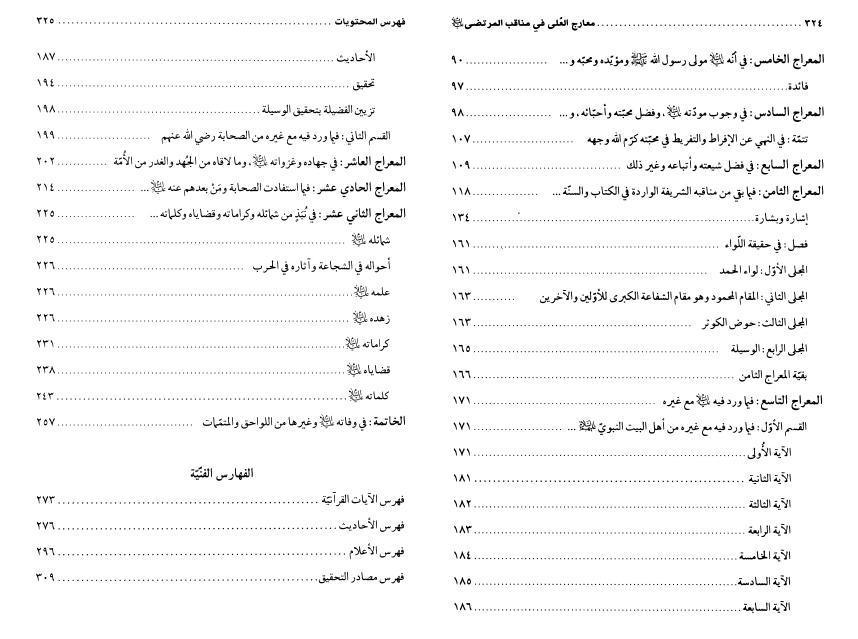 ٣٢٤ ........ معارج العُلى في مناقب المرتضى ﵇
المعراج الخامس : في أنّه ﵇ مولى رسول الله ﷺ ومؤيّده ومحبّه و ... ........ ٩٠
فائدة ........ ٩٧
المعراج السادس : في وجوب مودّته ﵇ ، وفضل محبّته وأحبّائه ، و ... ........ ٩٨
تتمّة : في النهي عن الإفراط والتفريط في محبّته كرّم الله وجهه ........ ١٠٧
المعراج السابع : في فضل شيعته وأتباعه وغير ذلك ........ ١٠٩
المعراج الثامن : فيما بقي من مناقبه الشريفة الواردة في الكتاب والسنّة ... ........ ١١٨
إشارة وبشارة ........ ١٣٤
فصل : في حقيقة اللّواء ........ ١٦١
المجلى الأوّل : لواء الحمد ........ ١٦١
المجلى الثاني : المقام المحمود وهو مقام الشفاعة الكبرى للأوّلين والآخرين ........ ١٦٣
المجلى الثالث : حوض الكوثر ........ ١٦٣
المجلى الرابع : الوسيلة ........ ١٦٥
بقيّة المعراج الثامن ........ ١٦٦
المعراج التاسع : فيما ورد فيه ﵇ مع غيره ........ ١٧١
القسم الأوّل : فيما ورد فيه مع غيره من أهل البيت النبويّ ... ........ ١٧١
الآية الأُولى ........ ١٧١
الآية الثانية ........ ١٨١
الآية الثالثة ........ ١٨٢
الآية الرابعة ........ ١٨٣
الآية الخامسة ........ ١٨٤
الآية السادسة ........ ١٨٥
الآية السابعة ........ ١٨٦
فهرس المحتويات ........ ٣٢٥
الأحاديث ........ ١٨٧
تحقيق ........ ١٩٤
تزيين الفضيلة بتحقيق الوسيلة ........ ١٩٨
القسم الثاني : فيما ورد فيه مع غيره من الصحابة رضي الله عنهم ........ ١٩٩
المعراج العاشر : في جهاده وغزواته ﵇ ، وما لاقاه من الجُهد والغدر من الأُمّة ........ ٢٠٢
المعراج الحادي عشر : فيما استفادت الصحابة ومَنْ بعدهم عنه ﵇ ... ........ ٢١٤
المعراج الثاني عشر : في نُبَذٍ من شمائله وكراماته وقضاياه وكلماته ... ........ ٢٢٥
شمائله ﵇ ........ ٢٢٥
أحواله في الشجاعة وآثاره في الحرب ........ ٢٢٦
علمه ﵇ ........ ٢٢٦
زهده ﵇ ........ ٢٢٦
كراماته ﵇ ........ ٢٣١
قضاياه ﵇ ........ ٢٣٨
كلماته ﵇ ........ ٢٤٣
الخاتمة : في وفاته ﵇ وغيرها من اللواحق والمتمّمات ........ ٢٥٧
الفهارس الفنّيّة
فهرس الآيات القرآنيّة ........ ٢٧٣
فهرس الأحاديث ........ ٢٧٦
فهرس الأعلام ........ ٢٩٦
فهرس مصادر التحقيق ........ ٣٠٩